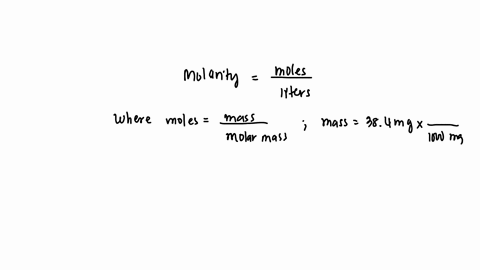 Molarity = moles / liters
where moles = mass / molar mass ; mass = 38.4 mg x __ / 1000 mg